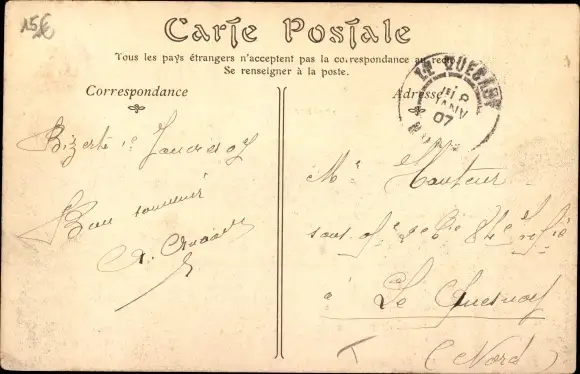 15€
Carte Postale
Tous les pays étrangers n'acceptent pas la correspondance au recto
Se renseigner à la poste.
Correspondance
Adresse
8
JANV
07
Bizerte 1er Janvier 07
Bon souvenir
Mr Hauteur
sous off
84e
à Le Quesnoy
(Nord)